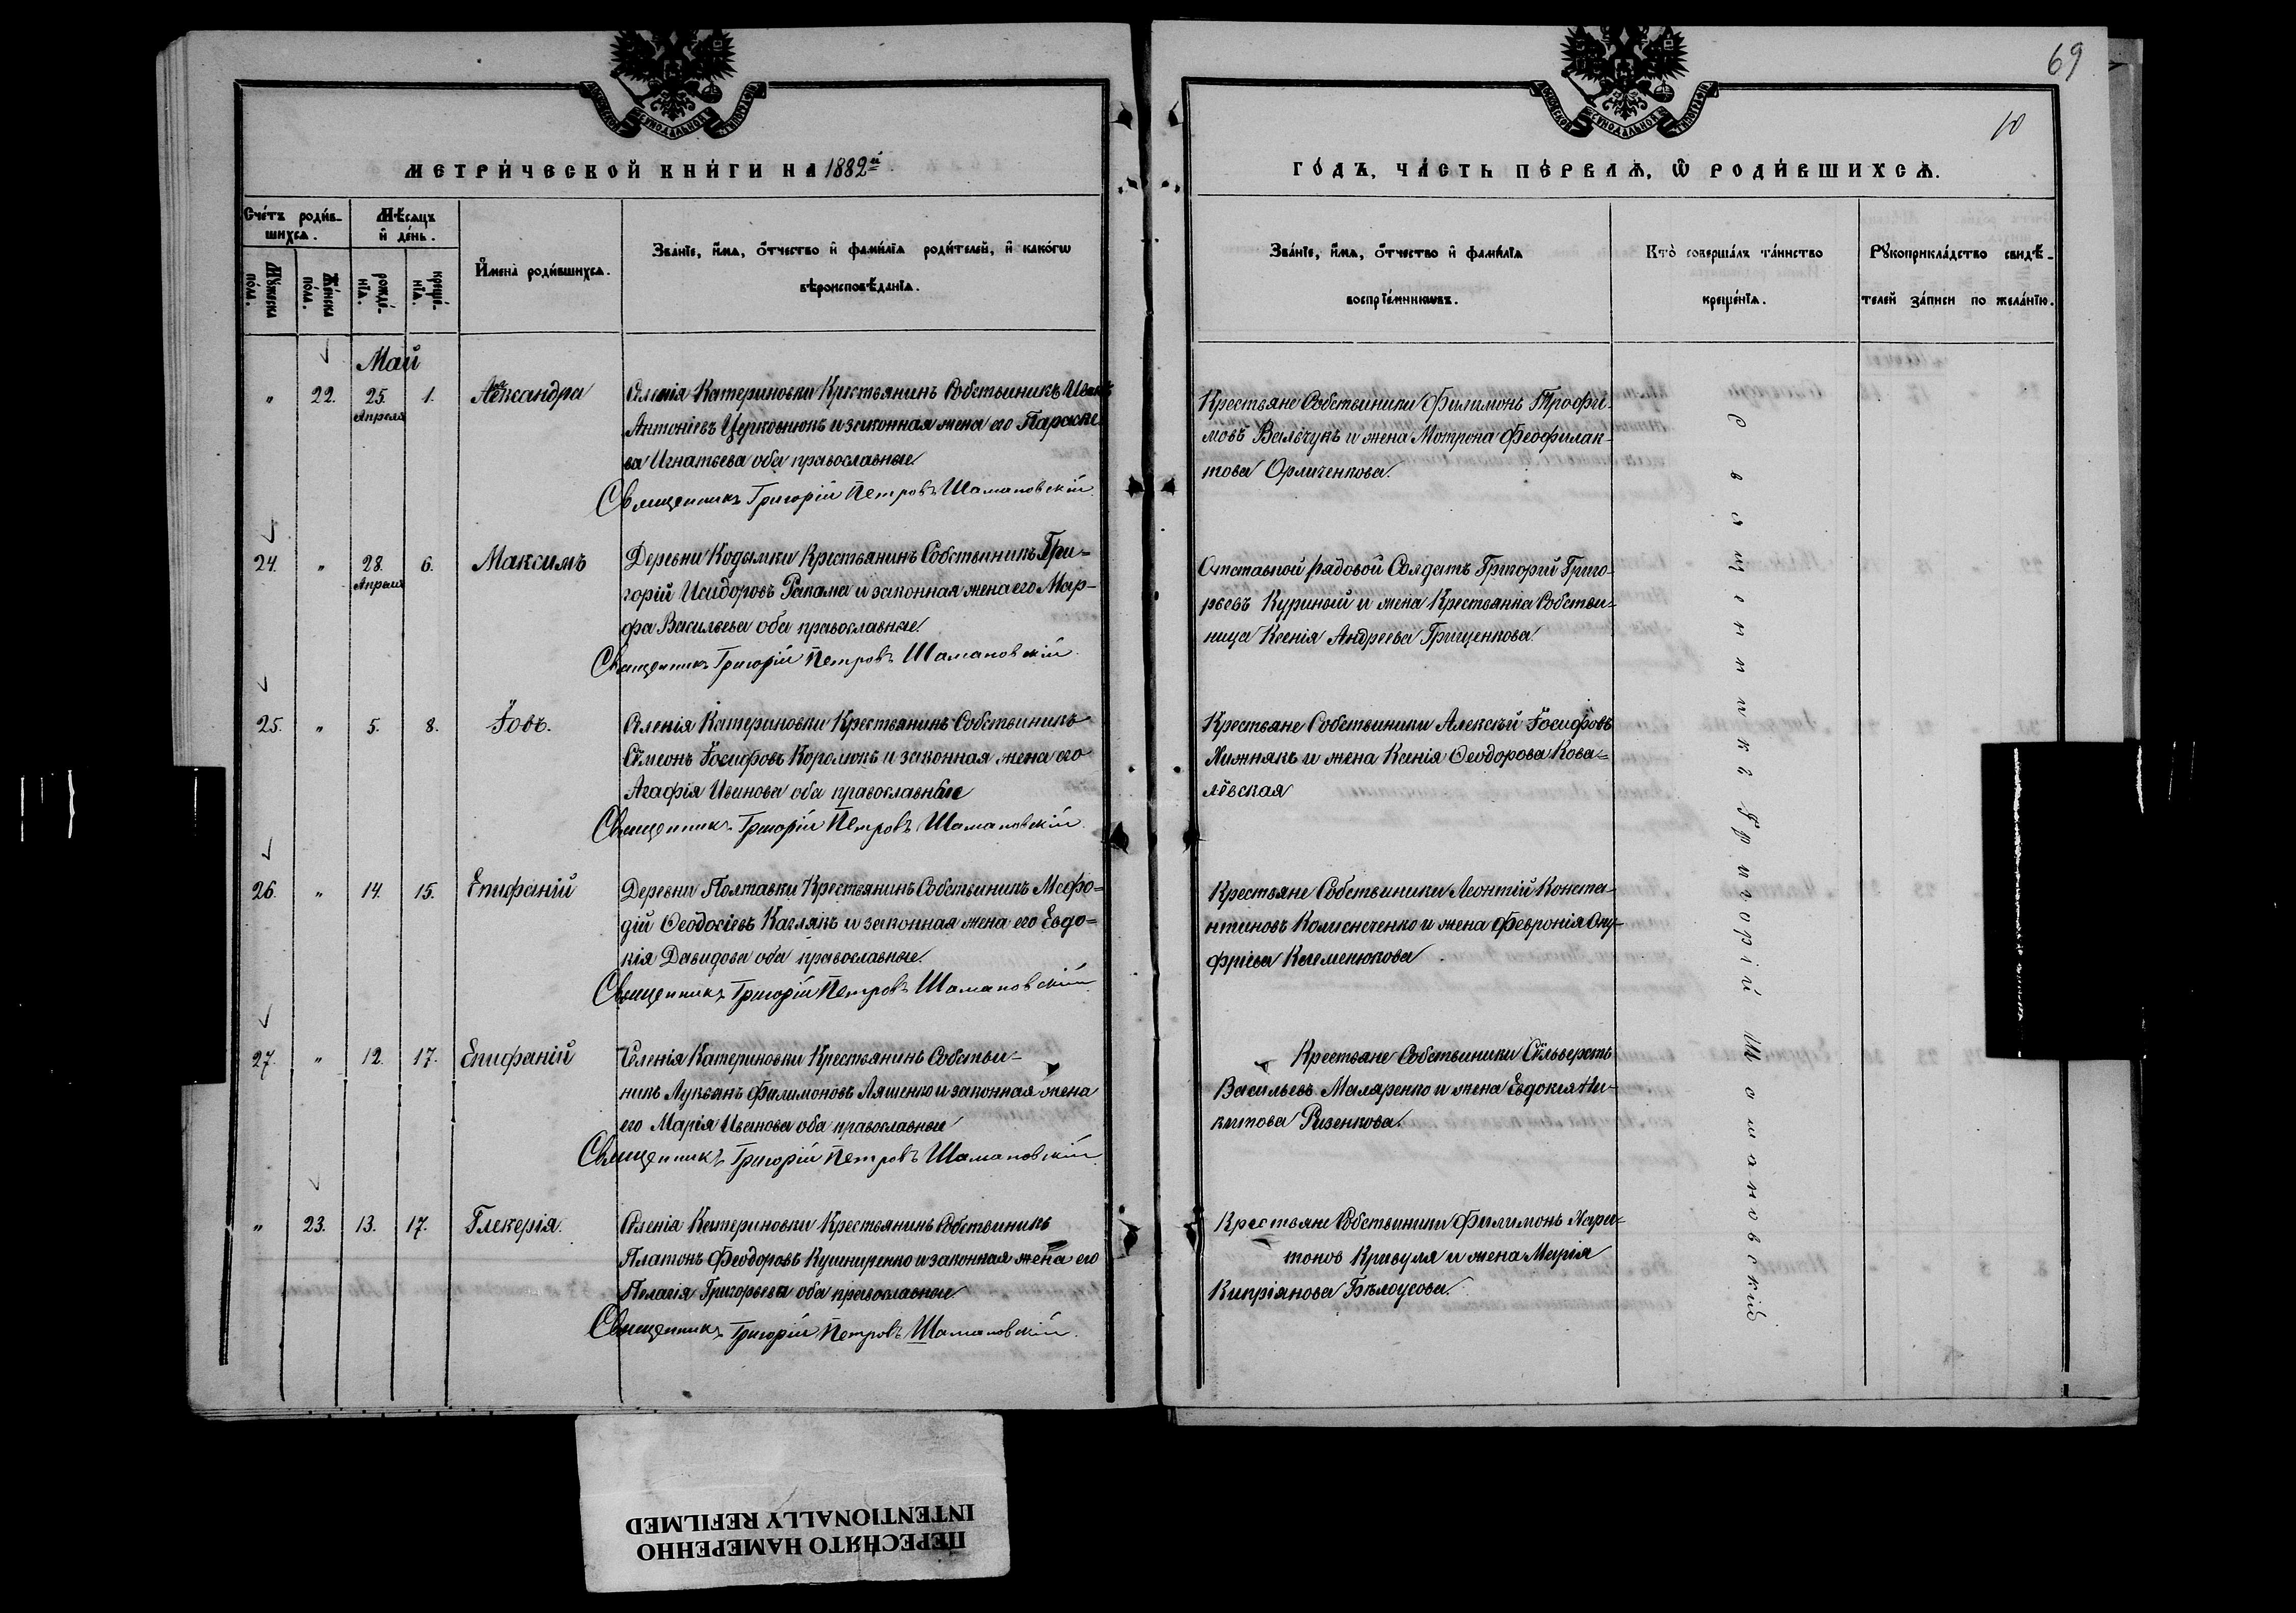 69
10
МЕТРИ́ЧЕСКОЙ КНИ́ГИ НА 1882й
ГО́ДЪ, ЧА́СТЬ ПЕ́РВАѦ, Ѽ РОДИ́ВШИХСѦ.
Сче́тъ роди́в-
шихсѧ.
Мѣ́сѧцъ
и҆ де́нь.
И҆мена̀ роди́вшихсѧ.
Зва́нїе, и҆́мѧ, ѻ҆́тчество и҆ фамѝлїа роди́телей, и҆ како́гѡ
вѣроисповѣ́данїѧ.
Мꙋ́жеска
по́ла.
Же́нска
по́ла.
рожде́-
нїѧ.
креще́-
нїѧ.
Зва́нїе, и҆́мѧ, ѻ҆́тчество и҆ фамѝлїа
воспрїе́мникѡвъ.
Кто̀ соверша́лъ та́инство
креще́нїѧ.
Рꙋкоприкла́дство свидѣ́-
телей за́писи по жела́нїю.
Май
" 22. 25. 1. Александра
Апреля
Селенія Катериновки Крестьянинъ Собственникъ Иванъ
Антоніевъ Церковнюкъ и законная жена его Параске-
ва Игнатьева оба православные.
Священникъ Григорій Петровъ Шамановскій.
Крестьяне Собственики Филимонъ Трофи-
мовъ и жена Мотрона Феофилак-
това Орличенкова.
24. " 28. 6. Максимъ
Апреля
Деревни Кодымки Крестьянинъ Собственикъ Гри-
горій Исидоровъ Ракама и законная жена его Мар-
фа Васильева оба православные.
Священникъ Григорій Петровъ Шамановскій.
Отставной рядовой Солдатъ Григорій Григо-
рьевъ Куриный и жена Крестьянка Собствен-
ница Ксенія Андреева Грищенкова.
25. " 5. 8. Іовъ.
Селенія Катериновки Крестьянинъ Собственикъ
Симеонъ Іосифовъ Королюкъ и законная жена его
Агафія Иванова оба православные
Священникъ Григорій Петровъ Шамановскій.
Крестьяне Собственики Алексѣй Іосифовъ
Хижнякъ и жена Ксенія Феодорова Кова-
лѣвская
26. " 14. 15. Епифаній
Деревни Полтавки Крестьянинъ Собственикъ Мефо-
дій Феодосіевъ Каглякъ и законная жена его Евдо-
кія Давидова оба православные.
Священникъ Григорій Петровъ Шамановскій.
Крестьяне Собственики Леонтій Конста-
нтиновъ и жена Февронія Ону-
фріева Клеменюкова
27. " 12. 17. Епифаній
Селенія Катериновки Крестьянинъ Собствен-
никъ Лукьянъ Филимоновъ Ляшенко и законная жена
его Марія Иванова оба православные
Священникъ Григорій Петровъ Шамановскій.
Крестьяне Собственики Сильверстъ
Васильевъ Маляренко и жена Евдокия Ни-
китова Ризенкова.
" 23. 13. 17. Глекерія.
Селенія Катериновки Крестьянинъ Собственикъ
Платонъ Феодоровъ Кушниренко и законная жена его
Пелагія Григорьева оба православные.
Священникъ Григорій Петровъ Шамановскій.
Крестьяне Собственики Филимонъ Хари-
тоновъ Кривуля и жена Марія
Кипріянова Бѣлоусова.
Священникъ Григорій Шомановскій
ПЕРЕСНЯТО НАМЕРЕННО
INTENTIONALLY REFILMED